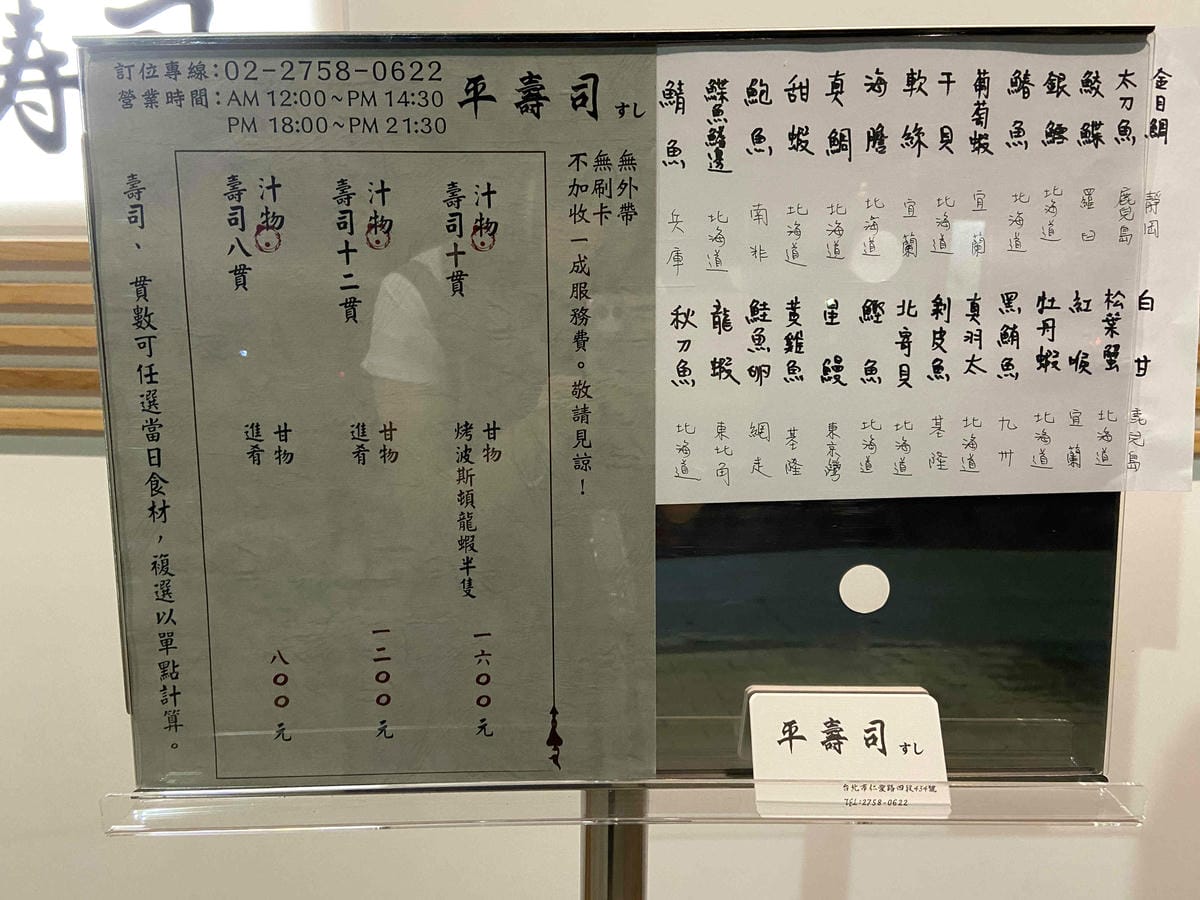 訂位專線:02-2758-0622
營業時間:AM 12:00~PM 14:30
PM 18:00~PM 21:30
平壽司 すし
無外帶
無刷卡
不加收一成服務費。敬請見諒!
汁物
壽司十貫
甘物
烤波斯頓龍蝦半隻
一六〇〇元
汁物
壽司十二貫
甘物
進肴
一二〇〇元
汁物
壽司八貫
甘物
進肴
八〇〇元
壽司、貫數可任選當日食材,複選以單點計算。
金目鯛 靜岡
太刀魚 鹿兒島
鮫鰈 羅臼
銀鱈 北海道
鰆魚 北海道
葡萄蝦 宜蘭
干貝 北海道
軟絲 宜蘭
海膽 北海道
真鯛 北海道
甜蝦 北海道
鮑魚 南非
鰈魚鰭邊 北海道
鯖魚 兵庫
白甘 鹿兒島
松葉蟹 北海道
紅喉 宜蘭
牡丹蝦 北海道
黑鮪魚 九州
真羽太 北海道
剝皮魚 基隆
北寄貝 北海道
鰹魚 北海道
星鰻 東京灣
黃雞魚 基隆
鮭魚卵 網走
龍蝦 東北角
秋刀魚 北海道
平壽司 すし
台北市仁愛路四段434號
TEL:2758-0622